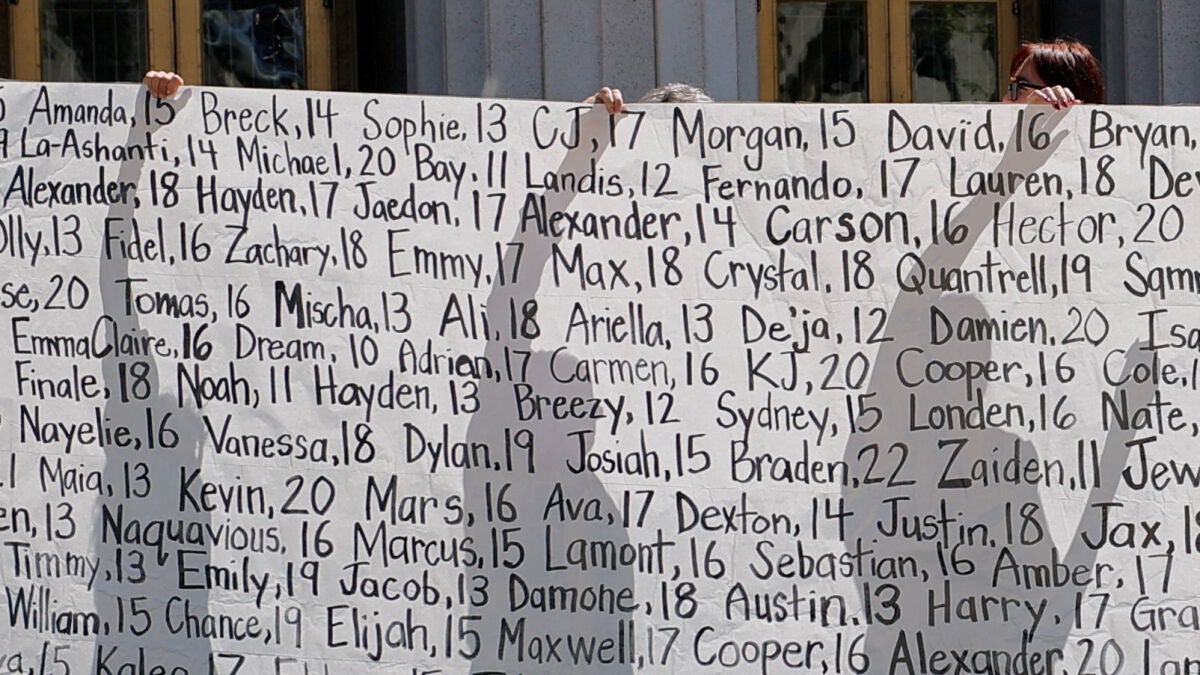 Amanda, 15 Breck, 14 Sophie, 13 CJ, 17 Morgan, 15 David, 16 Bryan,
La-Ashanti, 14 Michael, 20 Bay, 11 Landis, 12 Fernando, 17 Lauren, 18
Alexander, 18 Hayden, 17 Jaedon, 17 Alexander, 14 Carson, 16 Hector, 20
13 Fidel, 16 Zachary, 18 Emmy, 17 Max, 18 Crystal, 18 Quantrell, 19
20 Tomas, 16 Mischa, 13 Ali, 18 Ariella, 13 De'ja, 12 Damien, 20
EmmaClaire, 16 Dream, 10 Adrian, 17 Carmen, 16 KJ, 20 Cooper, 16 Cole,
Finale, 18 Noah, 11 Hayden, 13 Breezy, 12 Sydney, 15 Londen, 16 Nate,
Nayelie, 16 Vanessa, 18 Dylan, 19 Josiah, 15 Braden, 22 Zaiden, 11
Maia, 13 Kevin, 20 Mars, 16 Ava, 17 Dexton, 14 Justin, 18 Jax,
13 Naquavious, 16 Marcus, 15 Lamont, 16 Sebastian, 16 Amber, 17
Timmy, 13 Emily, 19 Jacob, 13 Damone, 18 Austin, 13 Harry, 17
William, 15 Chance, 19 Elijah, 15 Maxwell, 17 Cooper, 16 Alexander, 20
15 17